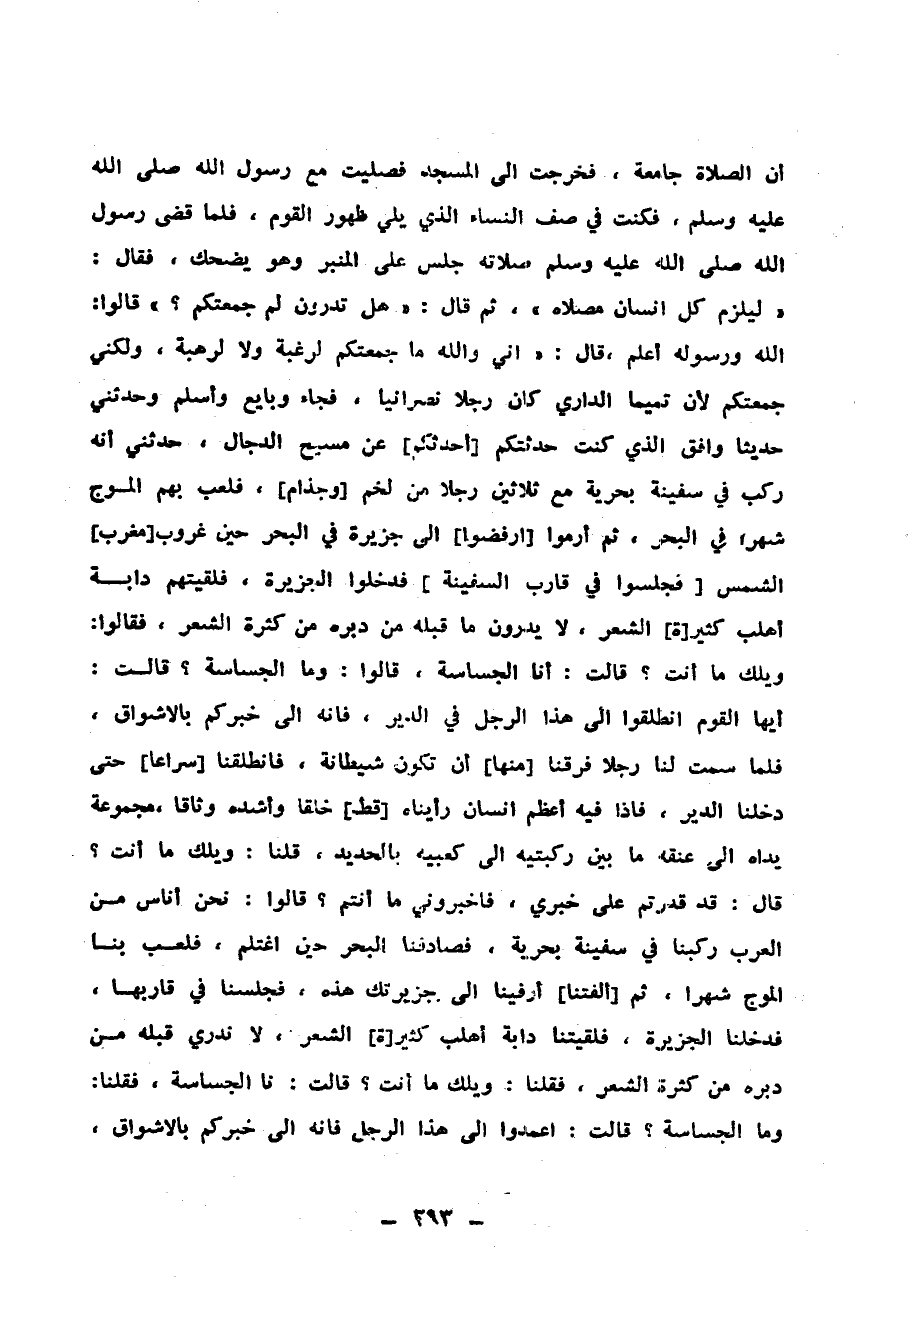 أن الصلاة جامعة ، فخرجت الى المسجد فصليت مع رسول الله صلى الله
عليه وسلم ، فكنت في صف النساء الذي يلي ظهور القوم ، فلما قضى رسول
الله صلى الله عليه وسلم صلاته جلس على المنبر وهو يضحك ، فقال :
« ليلزم كل انسان مصلاه » ، ثم قال : « هل تدرون لم جمعتكم ؟ » قالوا:
الله ورسوله أعلم ،قال : « اني والله ما جمعتكم لرغبة ولا لرهبة ، ولكني
جمعتكم لأن تميما الداري كان رجلا نصرانيا ، فجاء وبايع وأسلم وحدثني
حديثا وافق الذي كنت حدثتكم [أحدثكم] عن مسيح الدجال ، حدثني أنه
ركب في سفينة بحرية مع ثلاثين رجلا من لخم [وجذام] ، فلعب بهم الموج
شهرا في البحر ، ثم أرموا [ارفضوا] الى جزيرة في البحر حين غروب[مغرب]
الشمس [ فجلسوا في قارب السفينة ] فدخلوا الجزيرة ، فلقيتهم دابــة
أهلب كثير[ة] الشعر ، لا يدرون ما قبله من دبره من كثرة الشعر ، فقالوا:
ويلك ما أنت ؟ قالت : أنا الجساسة ، قالوا : وما الجساسة ؟ قالــت :
أيها القوم انطلقوا الى هذا الرجل في الدير ، فانه الى خبركم بالاشواق ،
فلما سمت لنا رجلا فرقنا [منها] أن تكون شيطانة ، فانطلقنا [سراعا] حتى
دخلنا الدير ، فاذا فيه أعظم انسان رأيناه [قط] خلقا وأشده وثاقا ،مجموعة
يداه الى عنقه ما بين ركبتيه الى كعبيه بالحديد ، قلنا : ويلك ما أنت ؟
قال : قد قدرتم على خبري ، فاخبروني ما أنتم ؟ قالوا : نحن أناس مــن
العرب ركبنا في سفينة بحرية ، فصادفنا البحر حين اغتلم ، فلعــب بنــا
الموج شهرا ، ثم [ألفتنا] أرفينا الى جزيرتك هذه ، فجلسنا في قاربهــا ،
فدخلنا الجزيرة ، فلقيتنا دابة أهلب كثير[ة] الشعر ، لا ندري قبله مــن
دبره من كثرة الشعر ، فقلنا : ويلك ما أنت ؟ قالت : نا الجساسة ، فقلنا:
وما الجساسة ؟ قالت : اعمدوا الى هذا الرجل فانه الى خبركم بالاشواق ،
– ٢٩٣ –